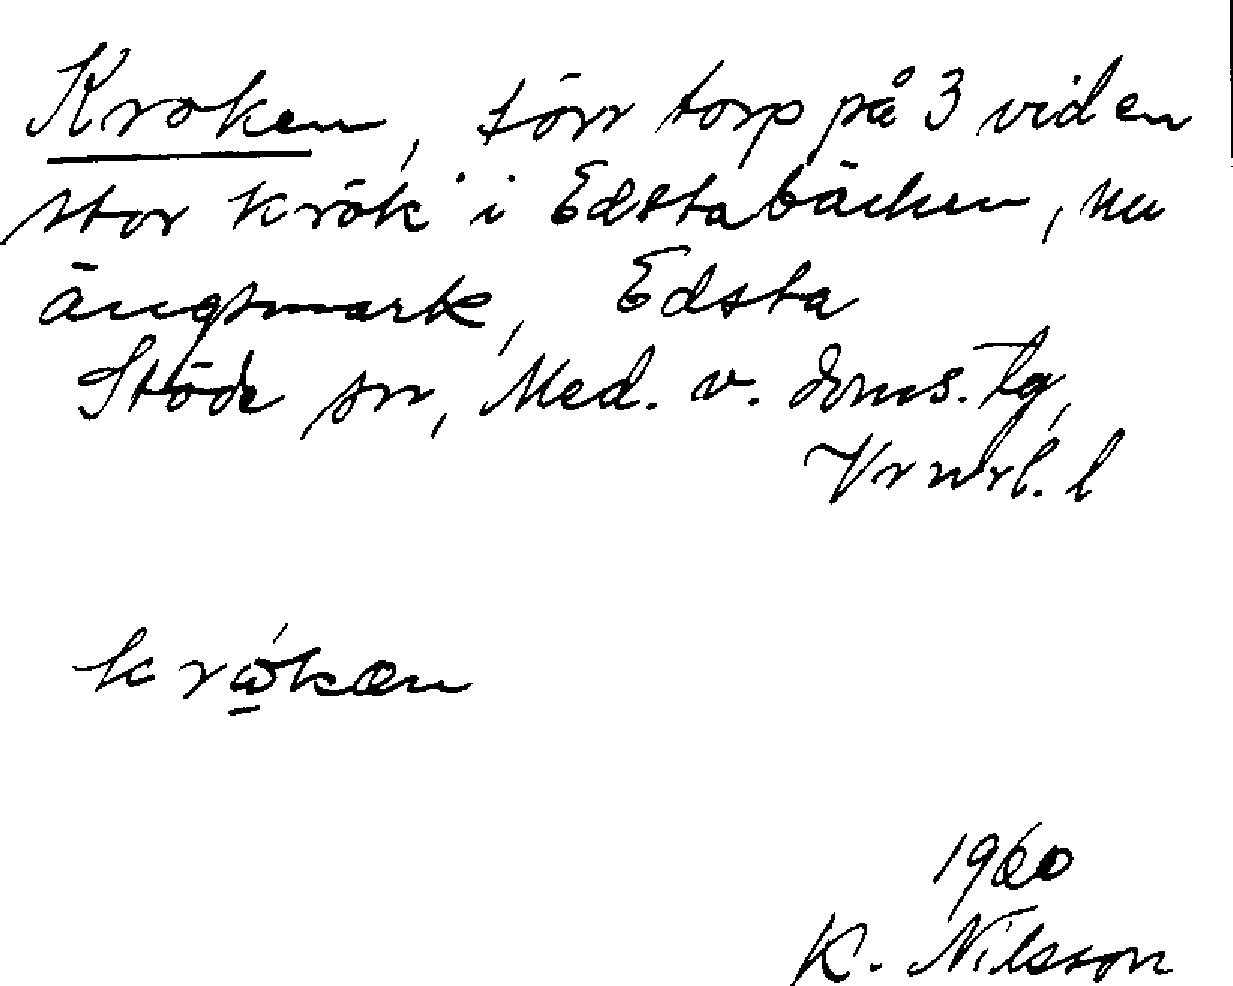 Kroken, förr torp på 3 vid en
stor krök i Edstabäcken, nu
ängsmark, Edsta
Stöde sn, Med. v. doms. tg,
Vrnrl. l
kråkæn
1960
K. Nilsson